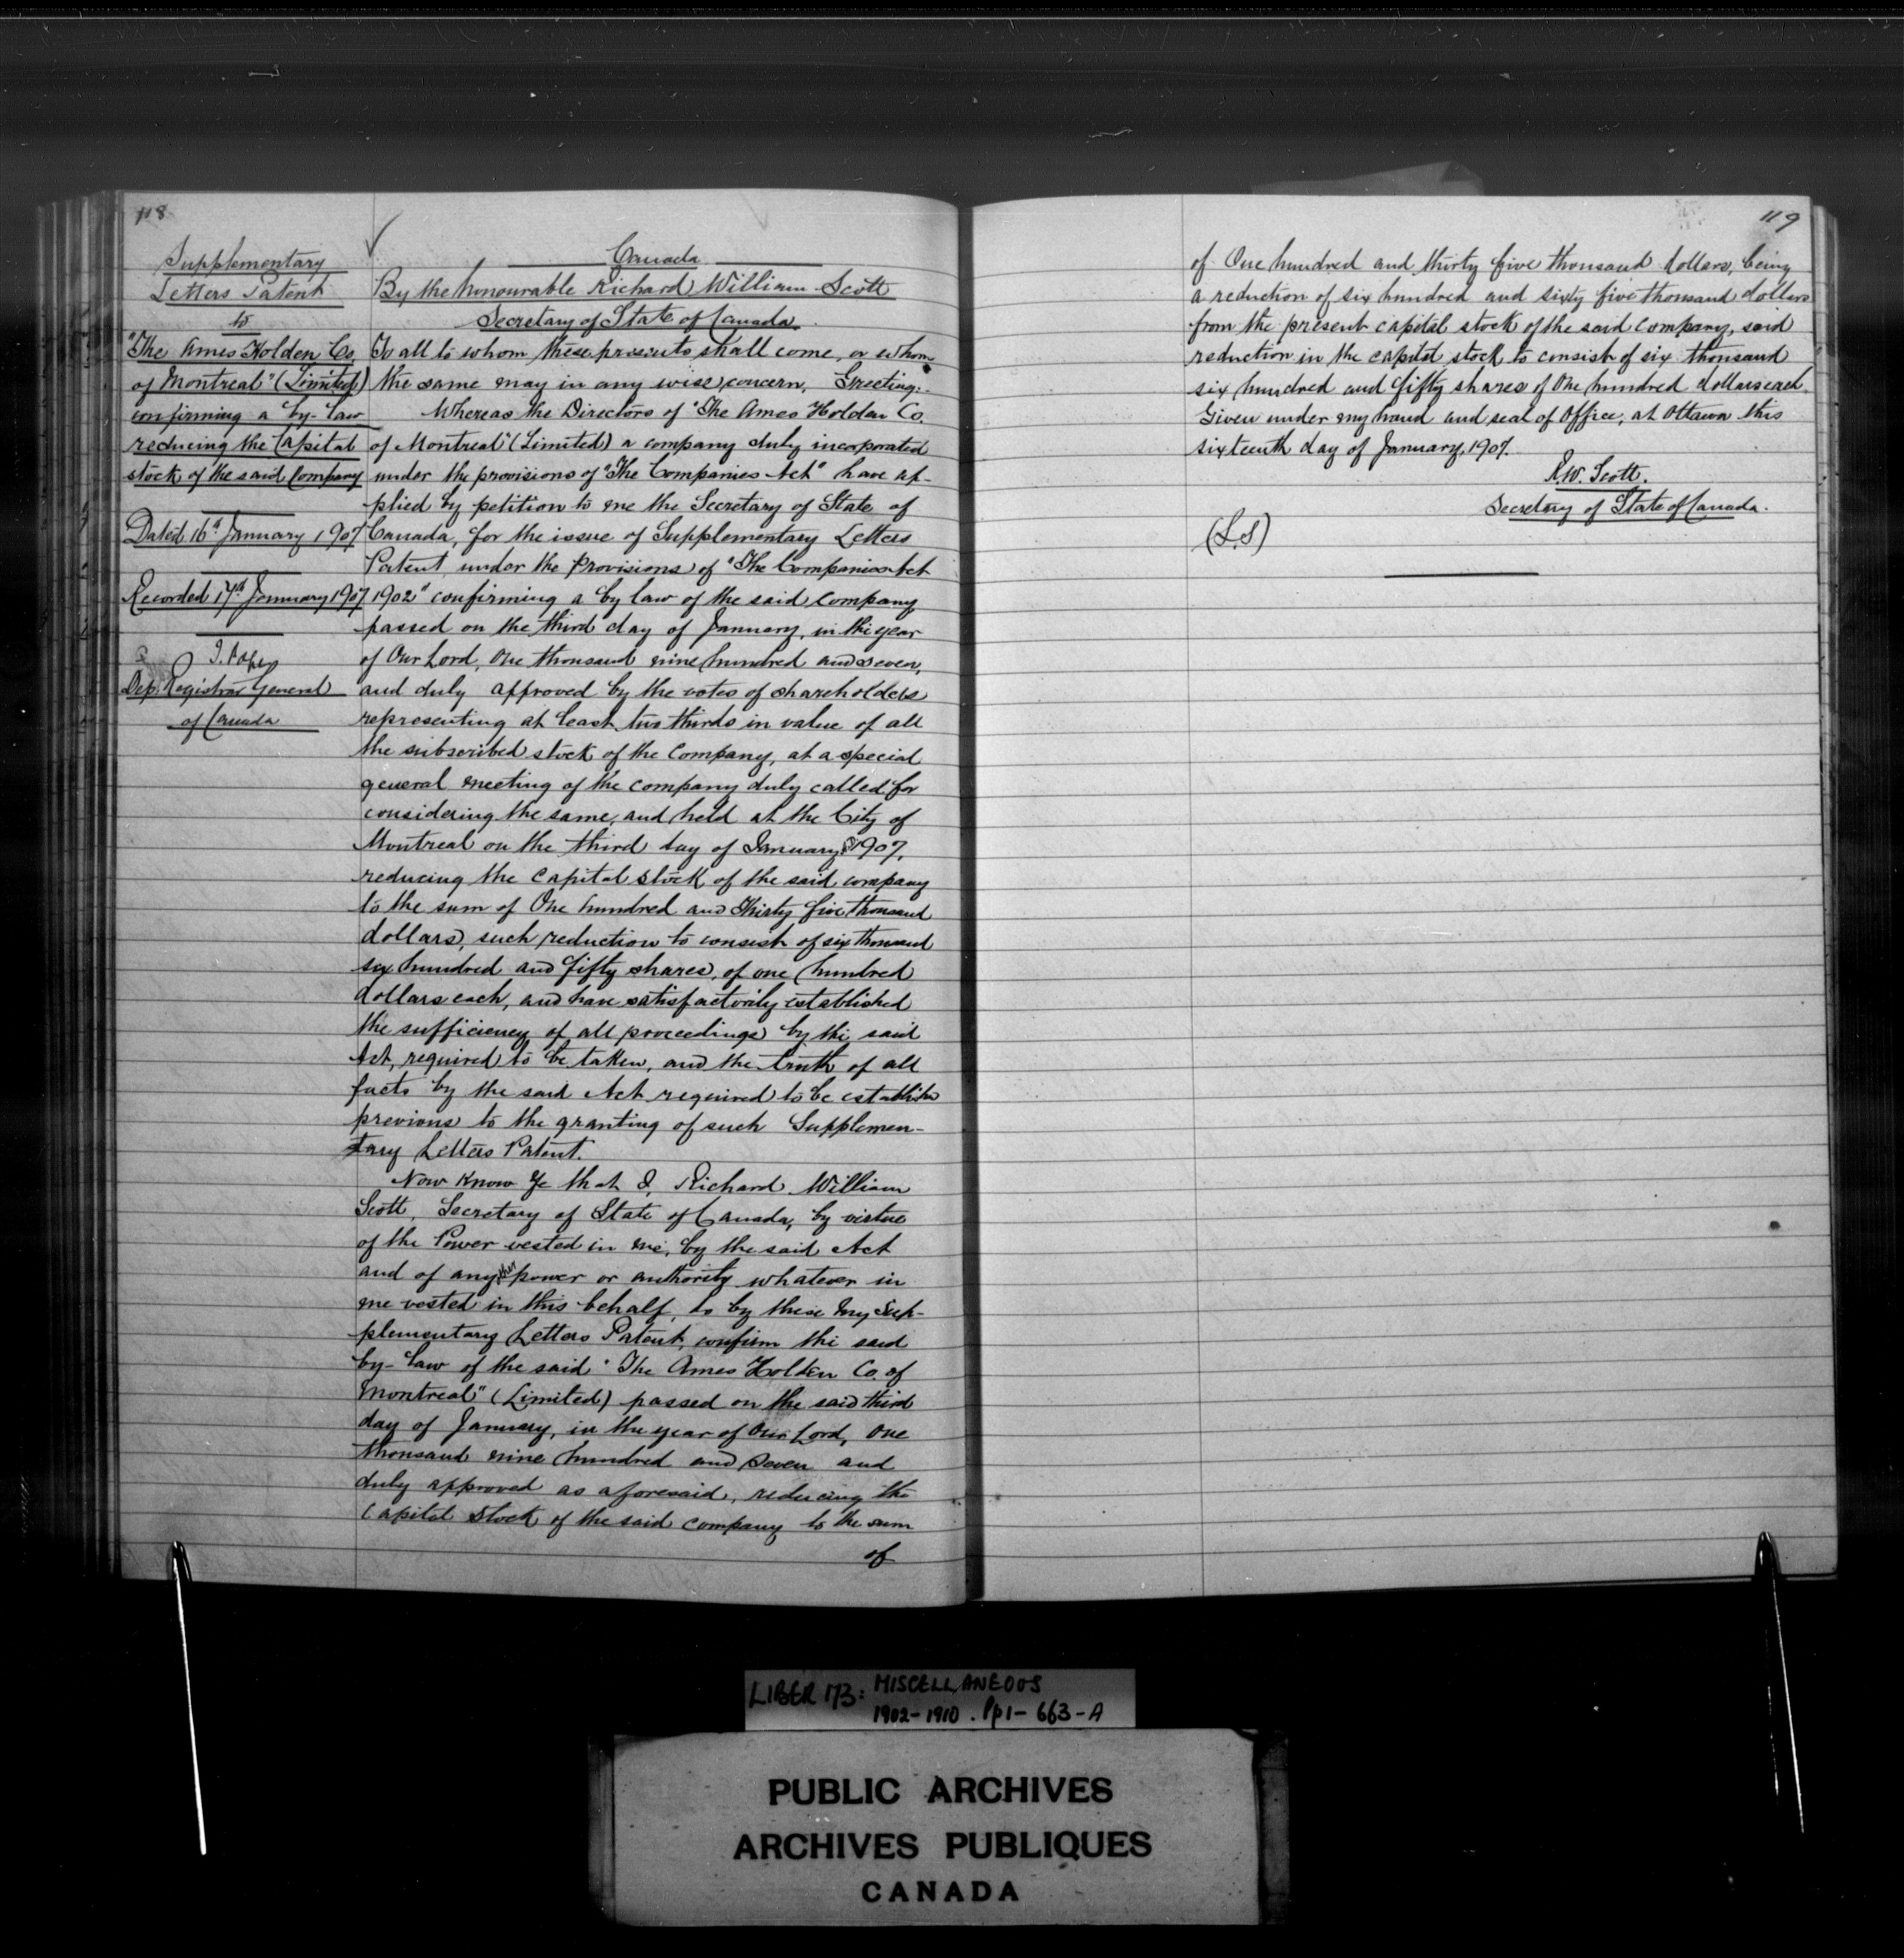 118
Supplementary
Letters Patent
to
"The Ames Holden Co.
of Montreal" (Limited)
confirming a by-law
reducing the Capital
stock of the said Company
Dated 16th January 1907
Recorded 17th January 1907
Dep. Registrar General
of Canada
Canada
By the honourable Richard William Scott
Secretary of State of Canada.
To all to whom these presents shall come, or whom
the same may in any wise concern, Greeting:-
Whereas the Directors of "The Ames Holden Co.
of Montreal" (Limited) a company duly incorporated
under the provisions of "The Companies Act" have ap-
plied by petition to me the Secretary of State of
Canada, for the issue of Supplementary Letters
Patent under the Provisions of "The Companies Act
1902" confirming a by law of the said Company
passed on the third day of January, in the year
of Our Lord, One thousand nine hundred and seven,
and duly approved by the votes of shareholders
representing at least two thirds in value of all
the subscribed stock of the Company, at a special
general meeting of the company duly called for
considering the same, and held at the City of
Montreal on the third day of January 1907,
reducing the Capital stock of the said company
to the sum of One hundred and thirty five thousand
dollars, such reduction to consist of six thousand
six hundred and fifty shares, of one hundred
dollars each, and have satisfactorily established
the sufficiency of all proceedings by the said
Act, required to be taken, and the truth of all
facts by the said Act required to be established
previous to the granting of such Supplemen-
tary Letters Patent.
Now Know Ye that I, Richard William
Scott, Secretary of State of Canada, by virtue
of the Power vested in me, by the said Act
and of any other power or authority whatever in
me vested in this behalf, do by these my Sup-
plementary Letters Patent, confirm the said
by-law of the said "The Ames Holden Co. of
Montreal" (Limited) passed on the said third
day of January, in the year of Our Lord, One
thousand nine hundred and seven and
duly approved as aforesaid, reducing the
Capital Stock of the said company to the sum
of
119
of One hundred and thirty five thousand dollars, being
a reduction of six hundred and sixty five thousand dollars
from the present capital stock of the said company, said
reduction in the capital stock to consist of six thousand
six hundred and fifty shares of One hundred dollars each.
Given under my hand and seal of Office, at Ottawa this
sixteenth day of January, 1907.
R.W. Scott.
Secretary of State of Canada.
(L.S)
LIBER 173: MISCELLANEOUS
1902-1910. Pp1-663-A
PUBLIC ARCHIVES
ARCHIVES PUBLIQUES
CANADA